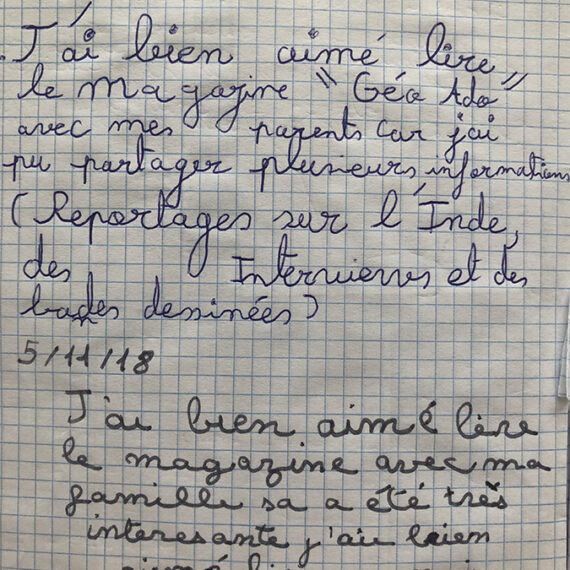 J'ai bien aimé lire
le magazine "Géo Ado"
avec mes parents car j'ai
pu partager plusieurs informations
(Reportages sur l'Inde,
des Interviews et des
bades dessinées)
5/11/18
J'ai bien aimé lire
le magazine avec ma
famille sa a été très
interesante j'ai bien
aimé